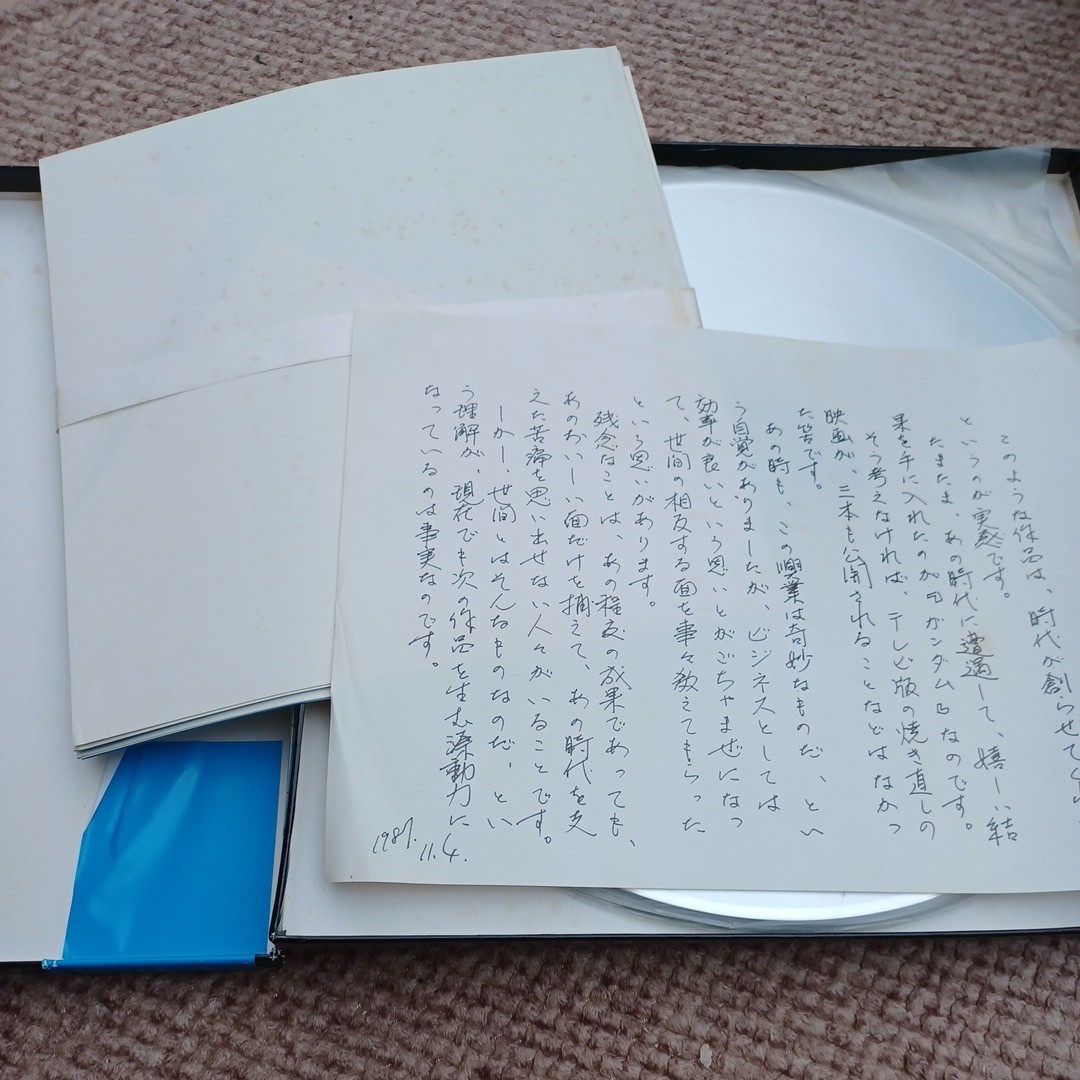 このような作品は、時代が創らせて
というのが実感です。
たまたま、あの時代に遭遇して、嬉しい結
果を手に入れたのが“ガンダム”なのです。
そう考えなければ、テレビ版の焼き直しの
映画が、三本も公開されることなどはなかっ
た筈です。
あの時も、この興業は奇妙なものだ、とい
う自覚がありましたが、ビジネスとしては
効率が良いという思いとがごちゃまぜになっ
て、世間の相反する面を事々教えてもらった
という思いがあります。
残念なことは、あの程度の成果であっても、
あのおいしい面だけを捕えて、あの時代を支
えた苦痛を思い出せない人々がいることです。
しかし、世間とはそんなものなのだ、とい
う理解が、現在でも次の作品を生む源動力に
なっているのは事実なのです。
1987.11.4.